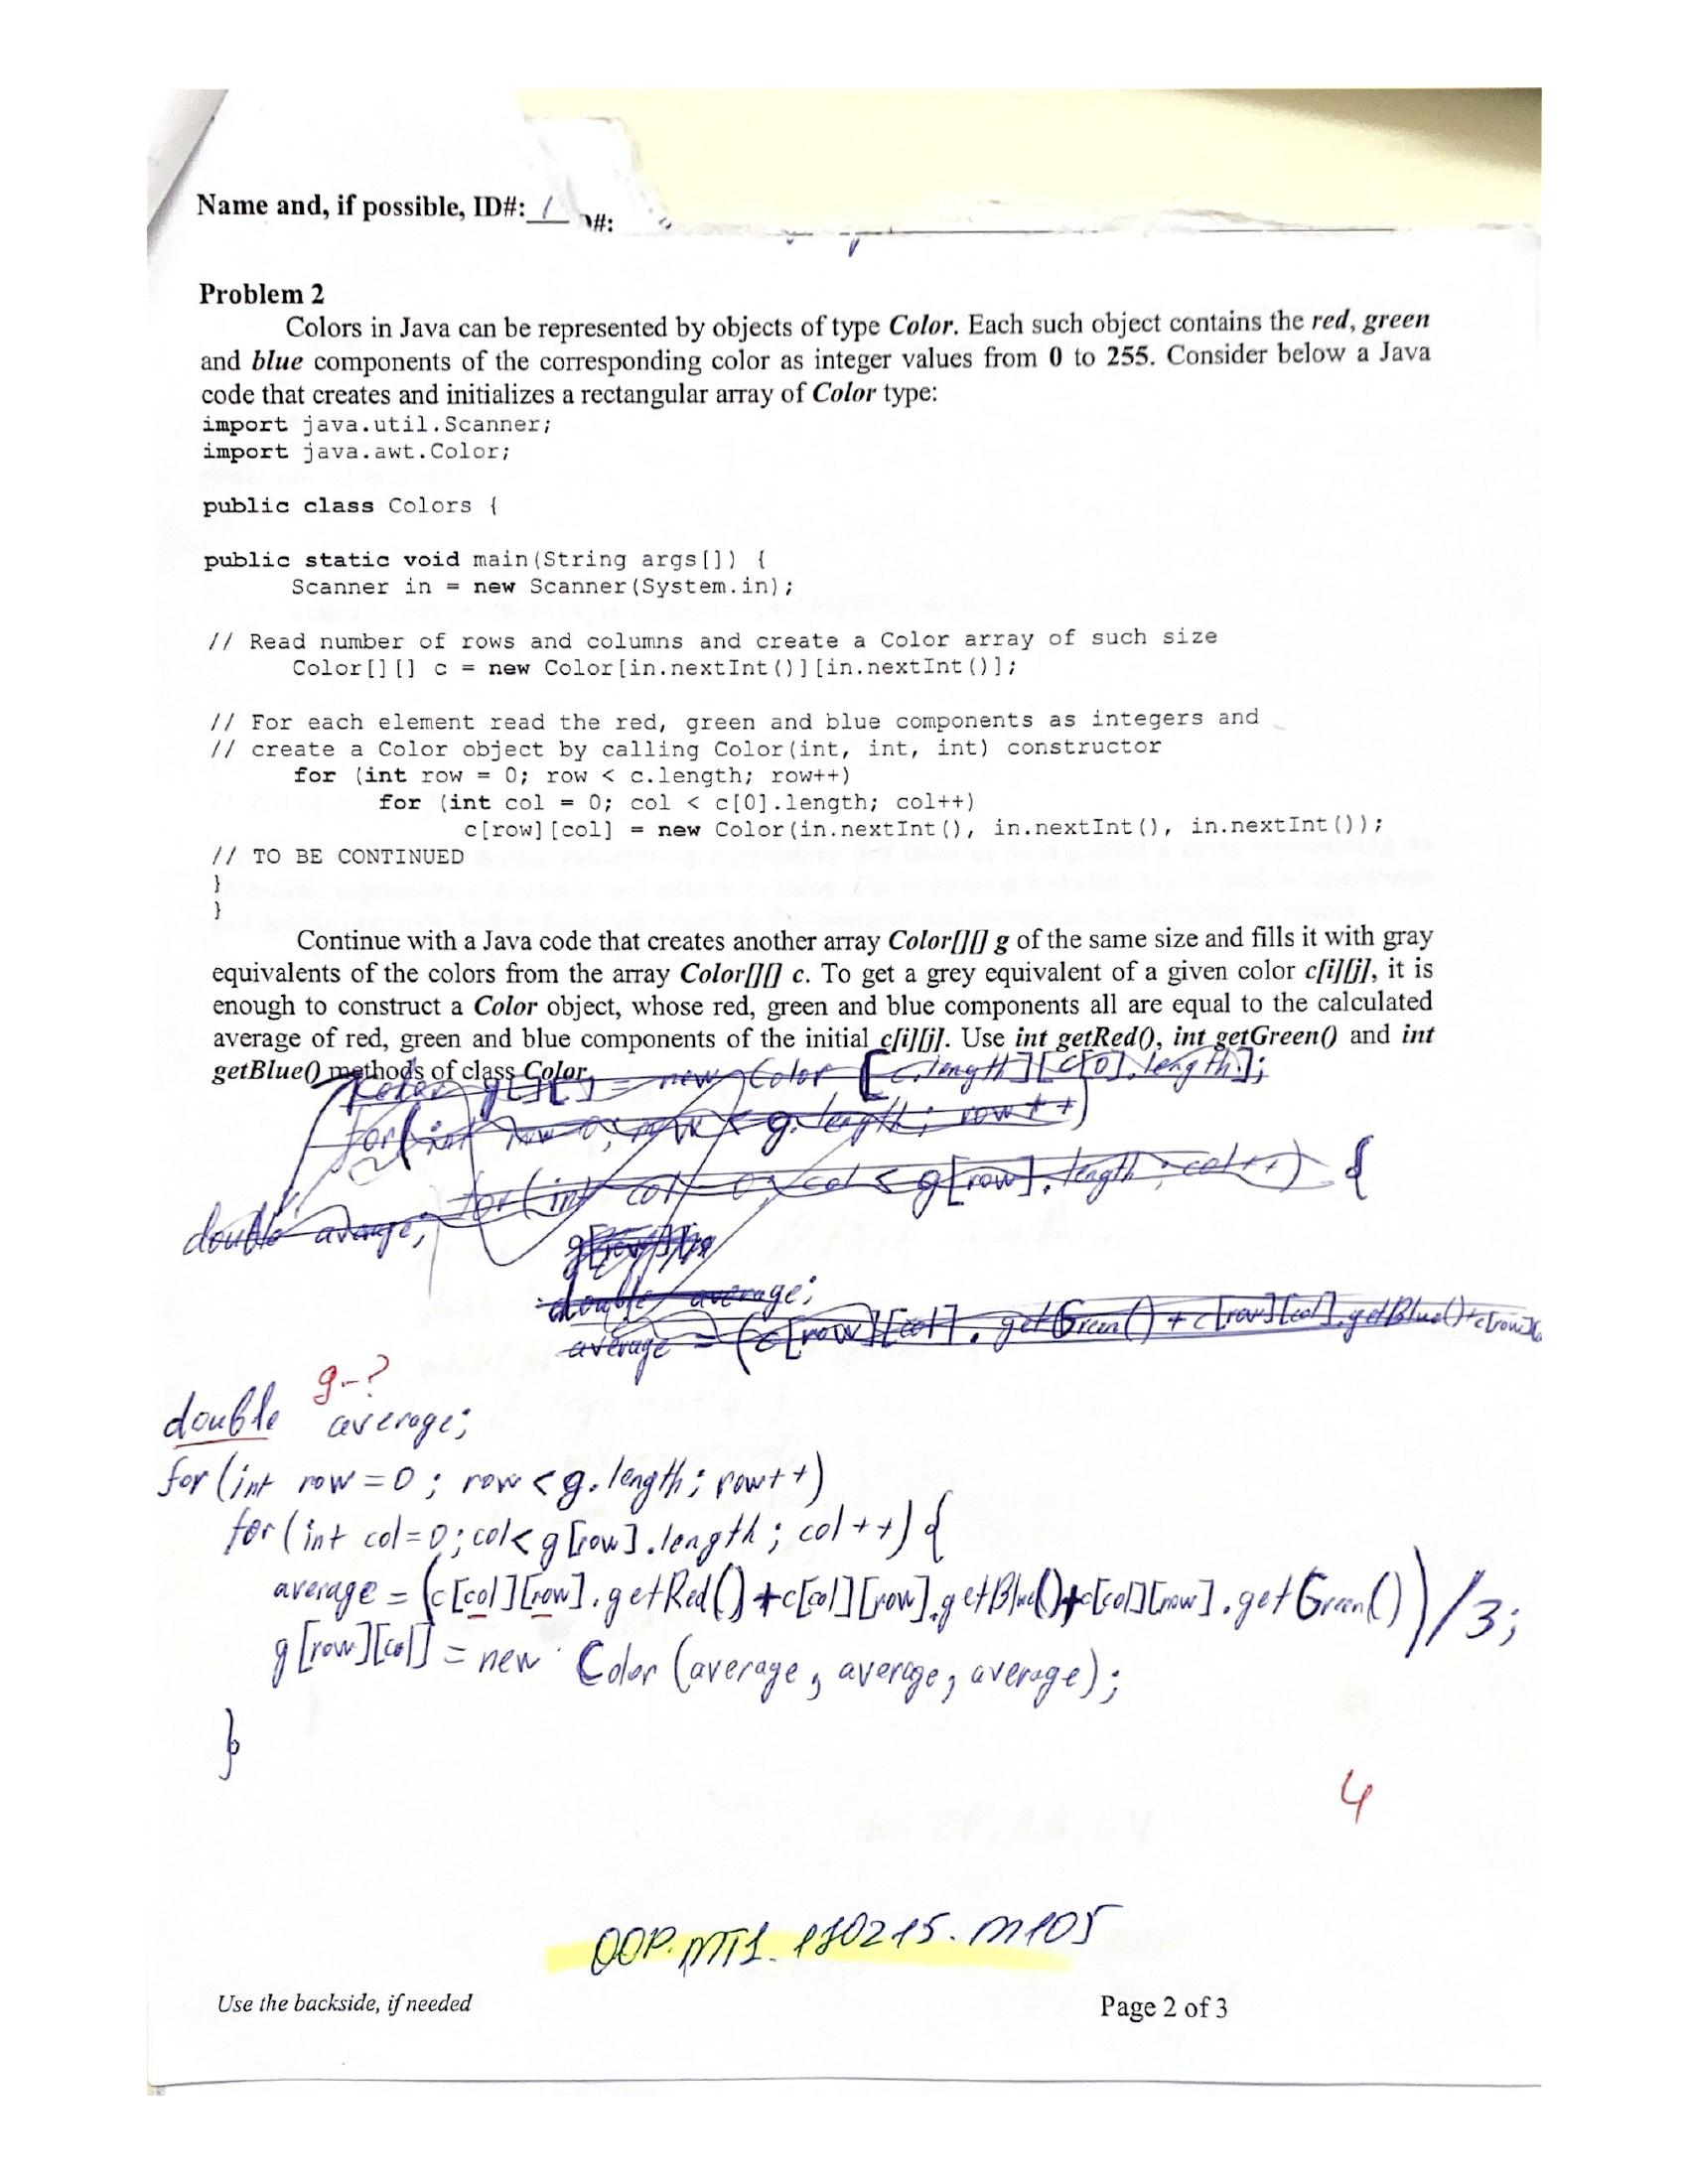 Name and, if possible, ID#:
#:
Problem 2
Colors in Java can be represented by objects of type Color. Each such object contains the red, green
and blue components of the corresponding color as integer values from 0 to 255. Consider below a Java
code that creates and initializes a rectangular array of Color type:
import java.util.Scanner;
import java.awt.Color;
public class Colors {
public static void main(String args[]) {
Scanner in = new Scanner(System.in);
// Read number of rows and columns and create a Color array of such size
Color[][] c = new Color[in.nextInt()][in.nextInt()];
// For each element read the red, green and blue components as integers and
// create a Color object by calling Color(int, int, int) constructor
for (int row = 0; row < c.length; row++)
for (int col = 0; col < c[0].length; col++)
c[row][col] = new Color(in.nextInt(), in.nextInt(), in.nextInt());
// TO BE CONTINUED
}
}
Continue with a Java code that creates another array Color[][] g of the same size and fills it with gray
equivalents of the colors from the array Color[][] c. To get a grey equivalent of a given color c[i][j], it is
enough to construct a Color object, whose red, green and blue components all are equal to the calculated
average of red, green and blue components of the initial c[i][j]. Use int getRed(), int getGreen() and int
getBlue() methods of class Color.
Color g[][] = new Color [c.length][c[0].length];
for(int row = 0; row < g.length; row++)
for(int col = 0; col < g[row].length; col++) {
double avarage;
g[row]
double average;
average = (c[row][col].getGreen() + c[row][col].getBlue()+c[row][
g-?
double average;
for(int row = 0; row < g.length; row++)
for(int col=0; col< g[row].length; col++) {
average = (c[col][row].getRed()+c[col][row].getBlue()+c[col][row].getGreen())/3;
g[row][col] = new Color (average, average, average);
}
4
OOP.MT1.170215.M105
Use the backside, if needed
Page 2 of 3